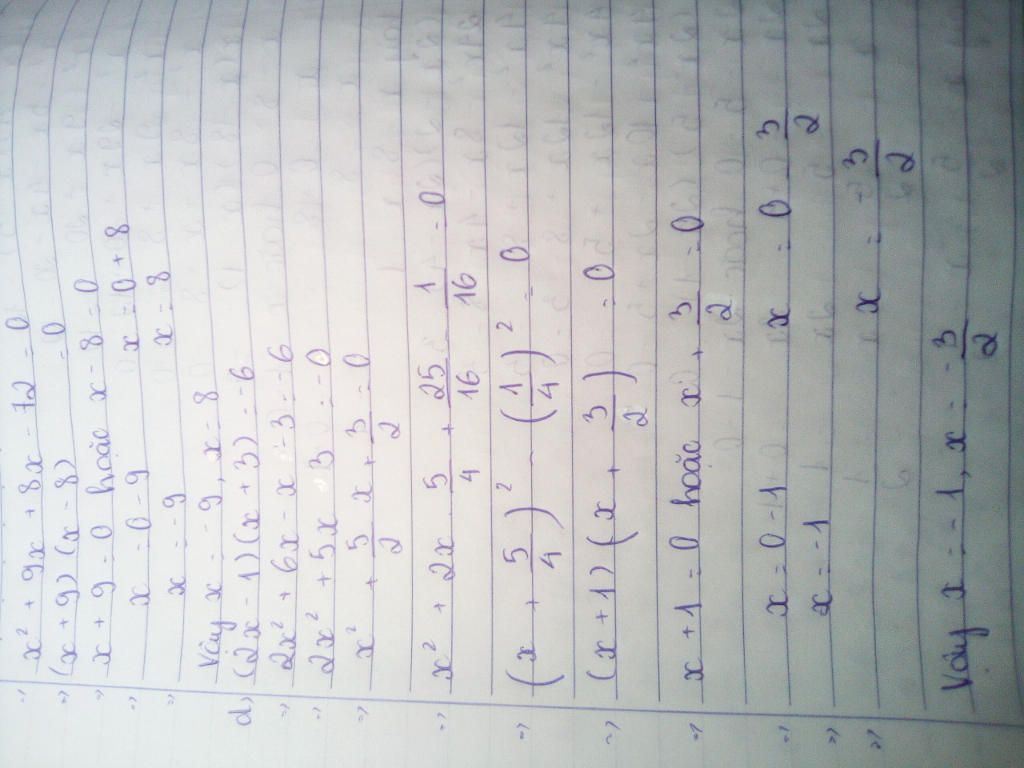 => x² + 9x + 8x - 72 = 0
=> (x + 9) (x - 8) = 0
=> x + 9 = 0 hoặc x - 8 = 0
=> x = 0 - 9 x = 0 + 8
=> x = - 9 x = 8
Vậy x = - 9, x = 8
d) (2x - 1) (x + 3) = - 6
=> 2x² + 6x - x - 3 = - 6
=> 2x² + 5x 3 = 0
=> x² + 5/2 x + 3/2 = 0
=> x² + 2x 5/4 + 25/16 - 1/16 = 0
=> (x + 5/4)² - (1/4)² = 0
=> (x + 1) (x + 3/2) = 0
=> x + 1 = 0 hoặc x + 3/2 = 0
=> x = 0 - 1 x = 0 3/2
=> x = - 1
=> x = - 3/2
Vậy x = - 1, x = - 3/2